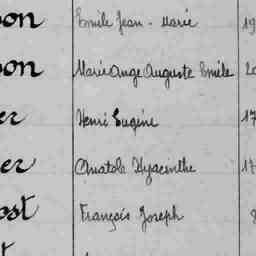 son Emile Jean - Marie 19
son Marie Ange Auguste Emile 20
er Henri Eugène 17
er Anatole Hyacinthe 17
ost François Joseph